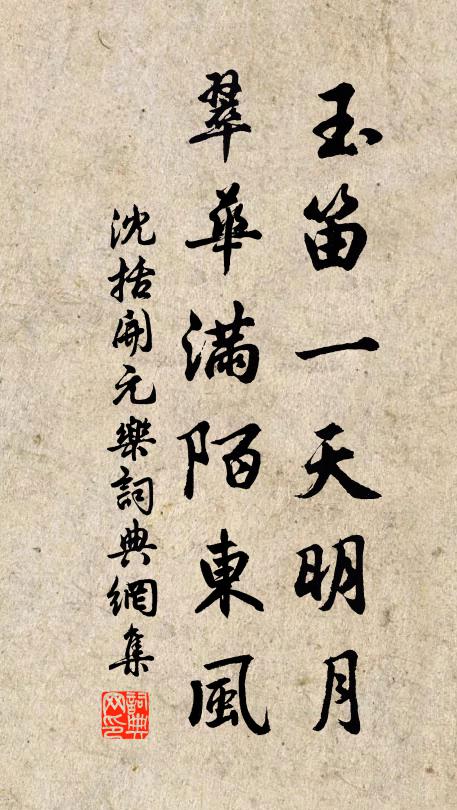 玉笛一天明月
翠華滿陌東風
沈括開元樂詞典網集
詞典网印